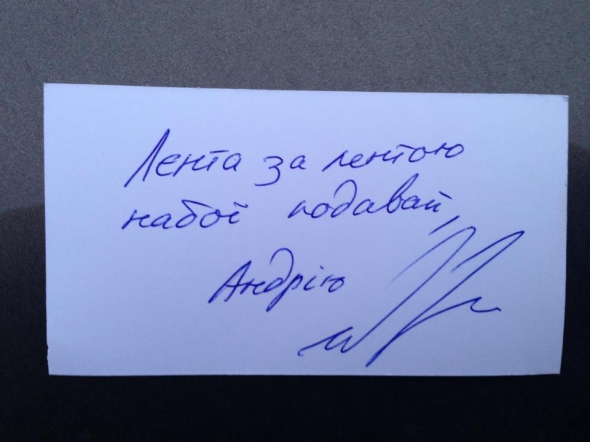 Лента за лентою
набої подавай,
Андрію